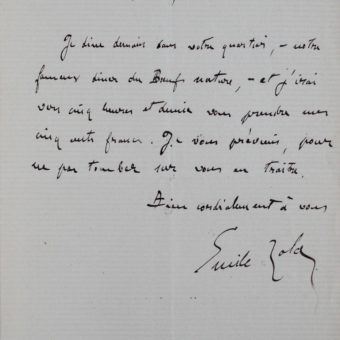 Je dine demain dans votre quartier, - notre
fameux diner du Bœuf nature, - et j'irai
vers cinq heures et demie vous prendre mes
cinq cents francs. Je vous préviens, pour
ne pas tomber sur vous en traître.
Bien cordialement à vous
Emile Zola